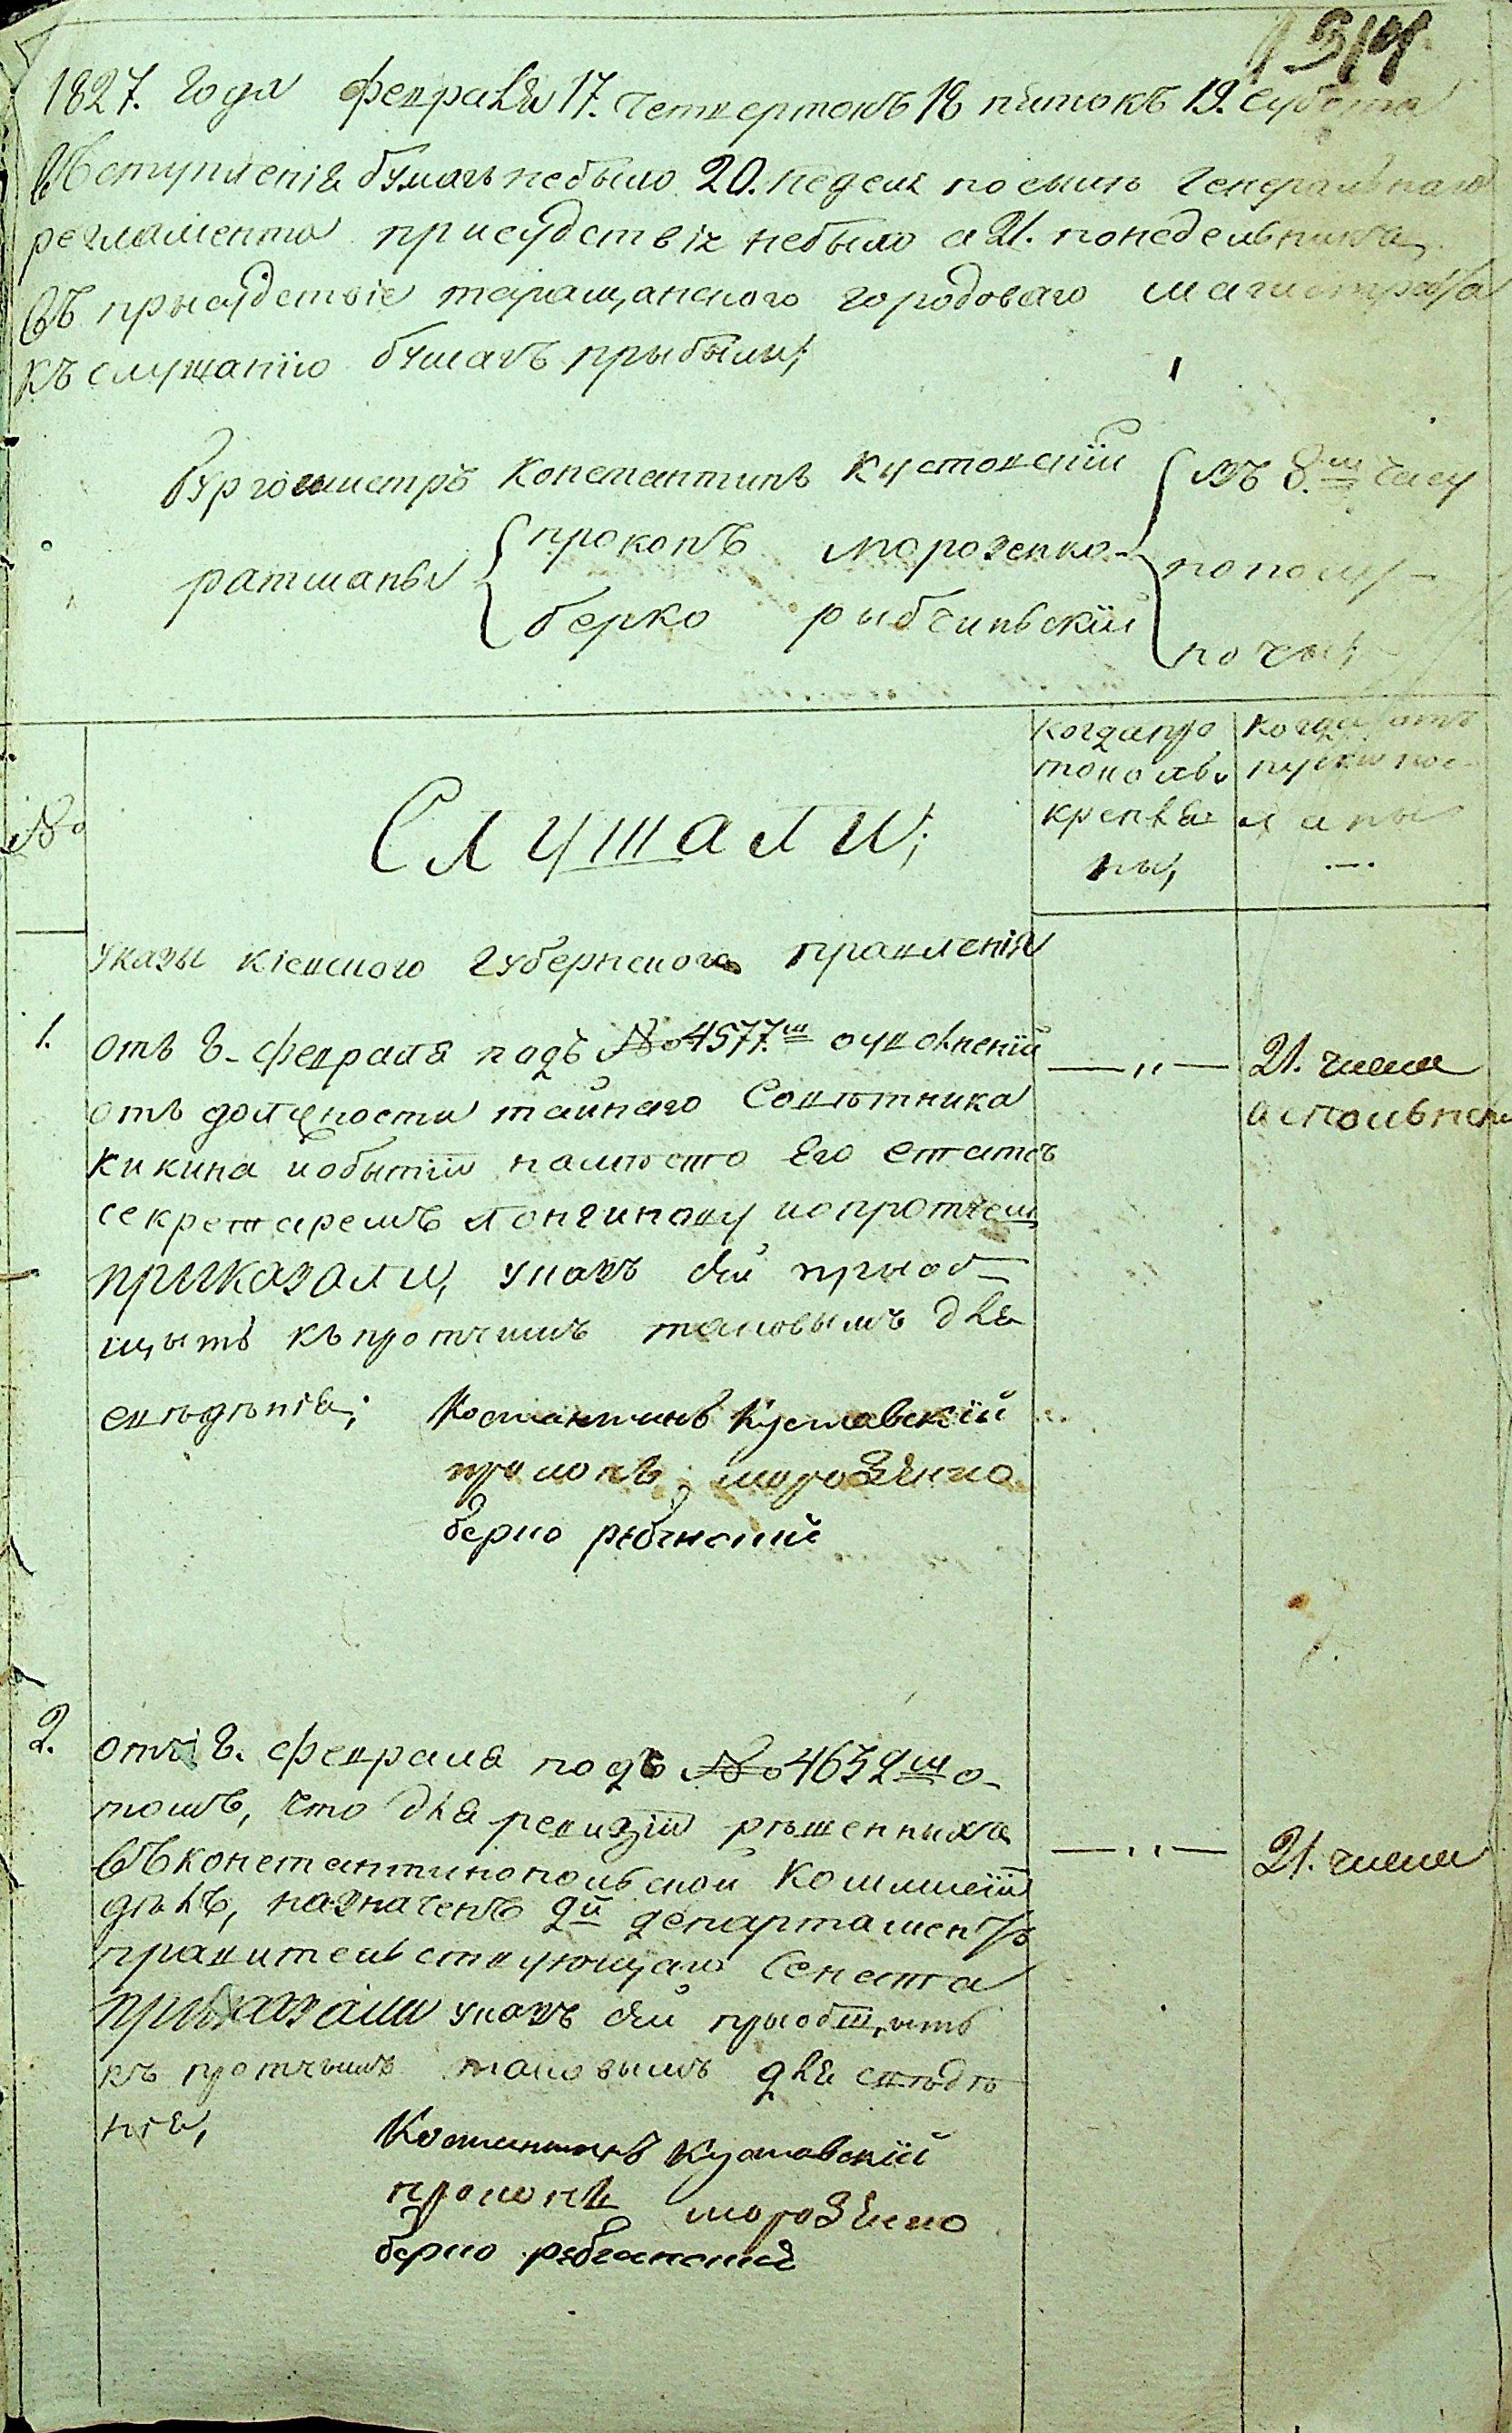 314
1827. года февраля 17. четвертокъ 18 пятокъ 19. субота
вступленія бумагъ небыло 20. неделя посылѣ генеральнаго
регламента присудствія небыло а 21. понеделника
въ прысудствіе таращанского городоваго магистрата
къ слушанію бумагъ прыбыли;
бургомистръ Константинъ Кустовскій
въ 8.м часу
ратманы
прокопъ морозенко
пополу-
берко рыбчинскій
ночы;
№
Слушали;
когда про
токолы
крепле
ны,
когда от
пуски пос-
ланы
указы кіевского губернского правленія
1. отъ 8- февраля подъ № 4577.м оувольненіи
отъ должности тайнаго Советника
Кикина и обытіи наместо Его Статсъ
секретаремъ Лонгинову и опротчем
приказали, указъ сей приоб-
щыть къ протчимъ таковымъ для
сведенія;
—„—
21. числа
Костантинъ Куставскій
прокопъ морозенко
берко рыбчнский
2. отъ 8. февраля подъ № 4632м о-
томъ, что для ревизіи решенныхъ
въ константинополской Коммисіи
делъ, назначенъ 2й департаментъ
правительствующаго Сената
приказали указъ сей приобщить
къ протчымъ таковымъ для сведе
нія,
—„—
21. числа
Костантинъ Куставскій
прокопъ морозенко
берко рыбчанский